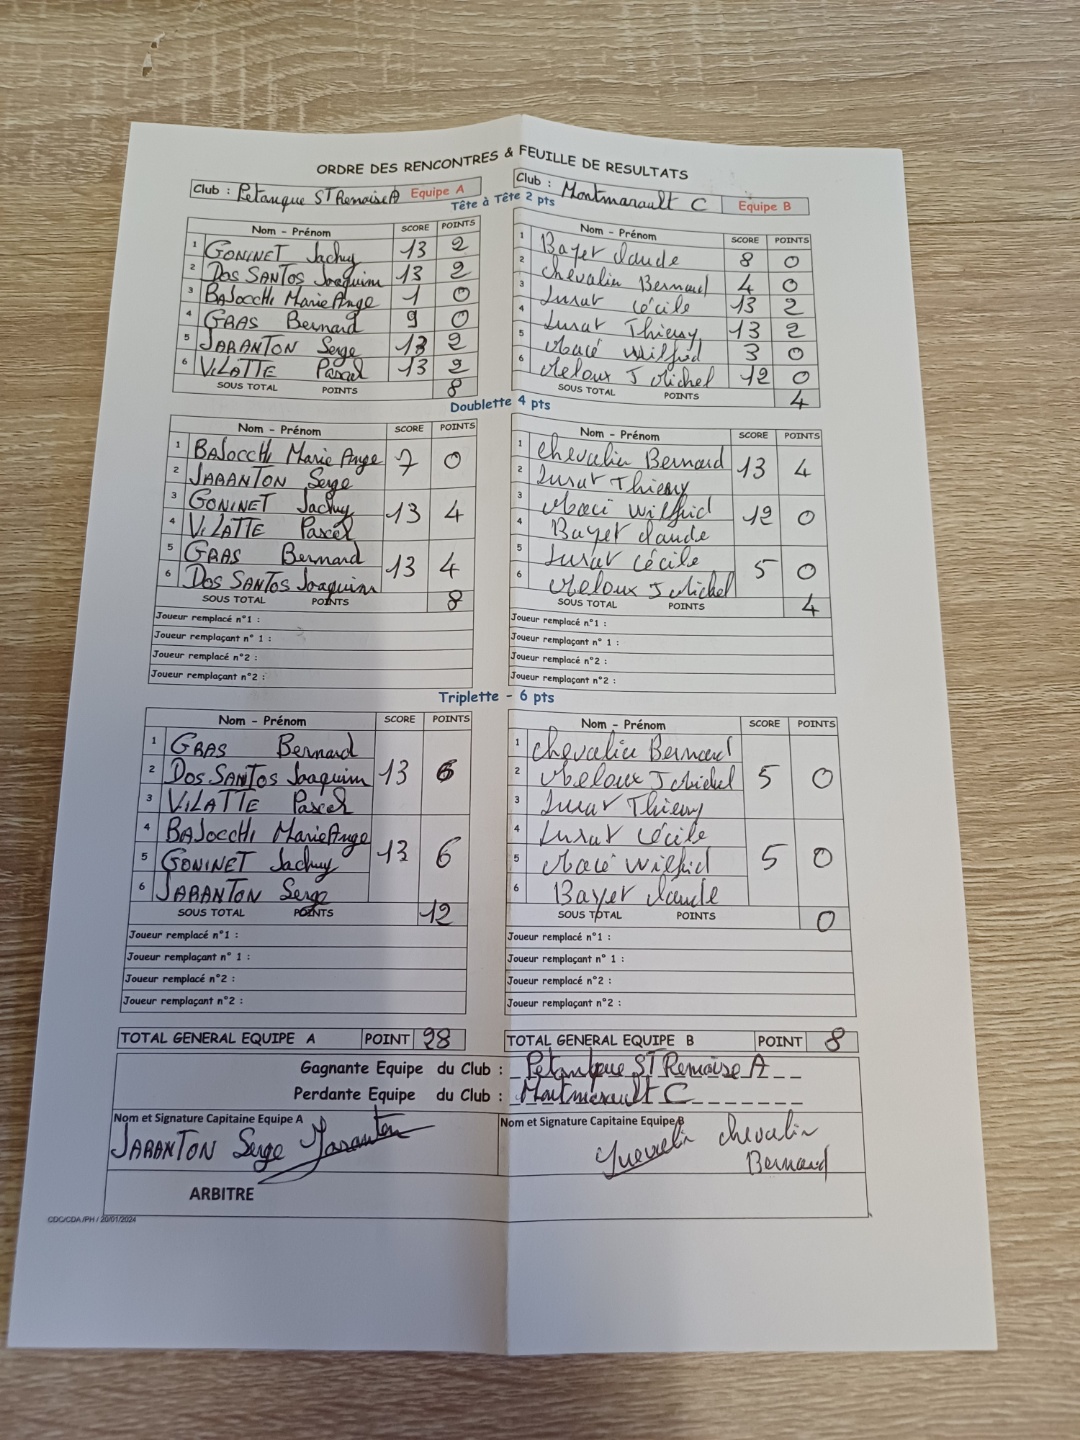 ORDRE DES RENCONTRES & FEUILLE DE RESULTATS
Club : Petanque ST RemaiseA Equipe A
Club : Montmarault C Equipe B
Tête à Tête 2 pts
Nom - Prénom SCORE POINTS
1 GONINET Jacky 13 2
2 DOS SANTOS Joaquim 13 2
3 BAJOCCHI Marie Ange 1 0
4 GRAS Bernard 9 0
5 JARANTON Serge 13 2
6 VILATTE Pascal 13 2
SOUS TOTAL POINTS 8
Nom - Prénom SCORE POINTS
1 Bayet Claude 8 0
2 Chevalin Bernard 4 0
3 Lurat Cécile 13 2
4 Lurat Thierry 13 2
5 Macé Wilfrid 3 0
6 Meloux J Michel 12 0
SOUS TOTAL POINTS 4
Doublette 4 pts
Nom - Prénom SCORE POINTS
1 BAJOCCHI Marie Ange 7 0
2 JARANTON Serge
3 GONINET Jacky 13 4
4 VILATTE Pascal
5 GRAS Bernard 13 4
6 DOS SANTOS Joaquim
SOUS TOTAL POINTS 8
Joueur remplacé n°1 :
Joueur remplaçant n° 1 :
Joueur remplacé n°2 :
Joueur remplaçant n°2 :
Nom - Prénom SCORE POINTS
1 Chevalin Bernard 13 4
2 Lurat Thierry
3 Macé Wilfrid 12 0
4 Bayet Claude
5 Lurat Cécile 5 0
6 Meloux J Michel
SOUS TOTAL POINTS 4
Joueur remplacé n°1 :
Joueur remplaçant n° 1 :
Joueur remplacé n°2 :
Joueur remplaçant n°2 :
Triplette - 6 pts
Nom - Prénom SCORE POINTS
1 GRAS Bernard
2 DOS SANTOS Joaquim 13 6
3 VILATTE Pascal
4 BAJOCCHI Marie Ange
5 GONINET Jacky 13 6
6 JARANTON Serge
SOUS TOTAL POINTS 12
Joueur remplacé n°1 :
Joueur remplaçant n° 1 :
Joueur remplacé n°2 :
Joueur remplaçant n°2 :
Nom - Prénom SCORE POINTS
1 Chevalin Bernard
2 Meloux J Michel 5 0
3 Lurat Thierry
4 Lurat Cécile
5 Macé Wilfrid 5 0
6 Bayet Claude
SOUS TOTAL POINTS 0
Joueur remplacé n°1 :
Joueur remplaçant n° 1 :
Joueur remplacé n°2 :
Joueur remplaçant n°2 :
TOTAL GENERAL EQUIPE A POINT 28
TOTAL GENERAL EQUIPE B POINT 8
Gagnante Equipe du Club : Petanque ST Remaise A
Perdante Equipe du Club : Montmarault C
Nom et Signature Capitaine Equipe A
JARANTON Serge Jaranton
Nom et Signature Capitaine Equipe B
Chevalin
Bernard
ARBITRE
CDC/CDA /PH / 20/01/2024